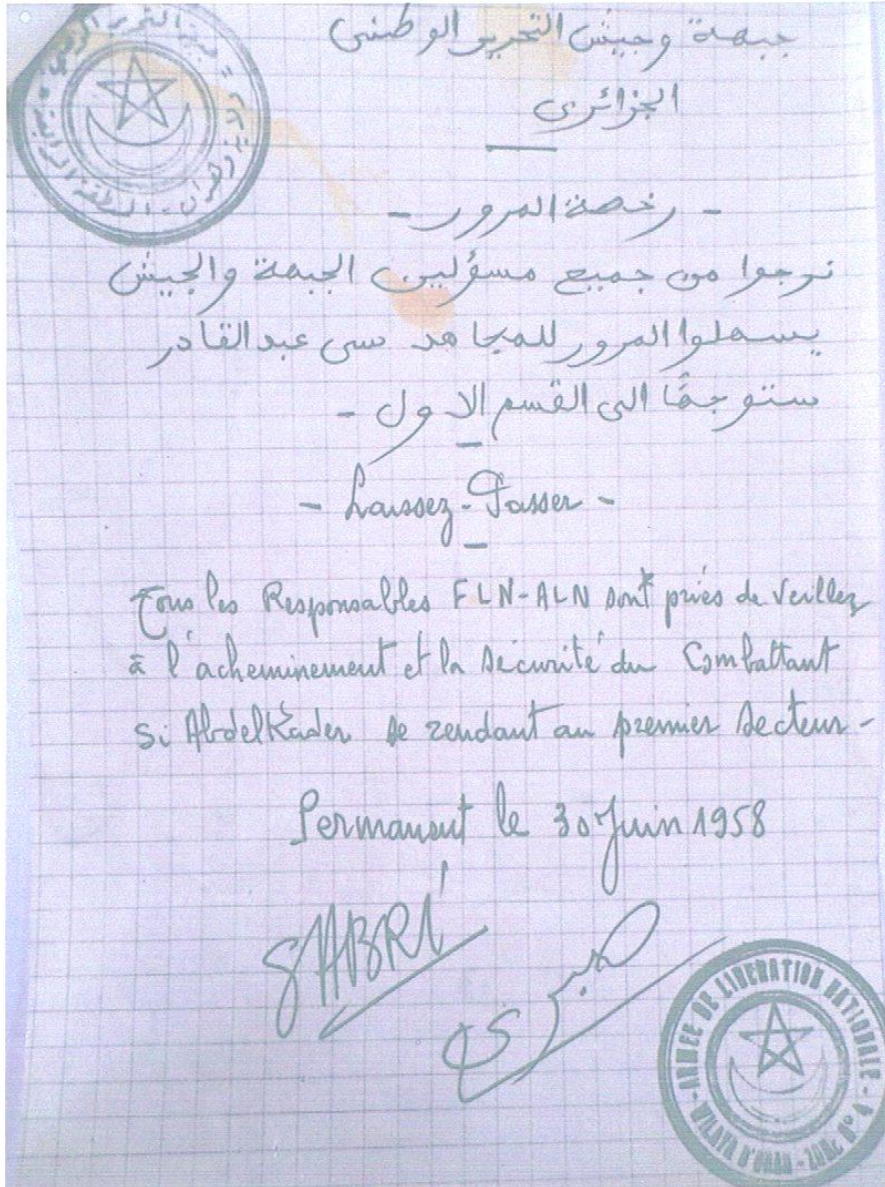 جبهة وجيش التحرير الوطني
الجزائري
- رخصة المرور -
نرجوا من جميع مسؤلين الجبهة والجيش
يسهلوا المرور للمجاهد سي عبد القادر
متوجهًا الى القسم الاول -
- Laissez-Passer -
Tous les Responsables FLN-ALN sont priés de Veillez
à l'acheminement et la sécurité du Combattant
Si AbdelKader se rendant au premier secteur -
Permanent le 30 Juin 1958
SABRI
صبري
ARMEE DE LIBERATION NATIONALE
WILAYA D'ORAN - ZONE N° 4